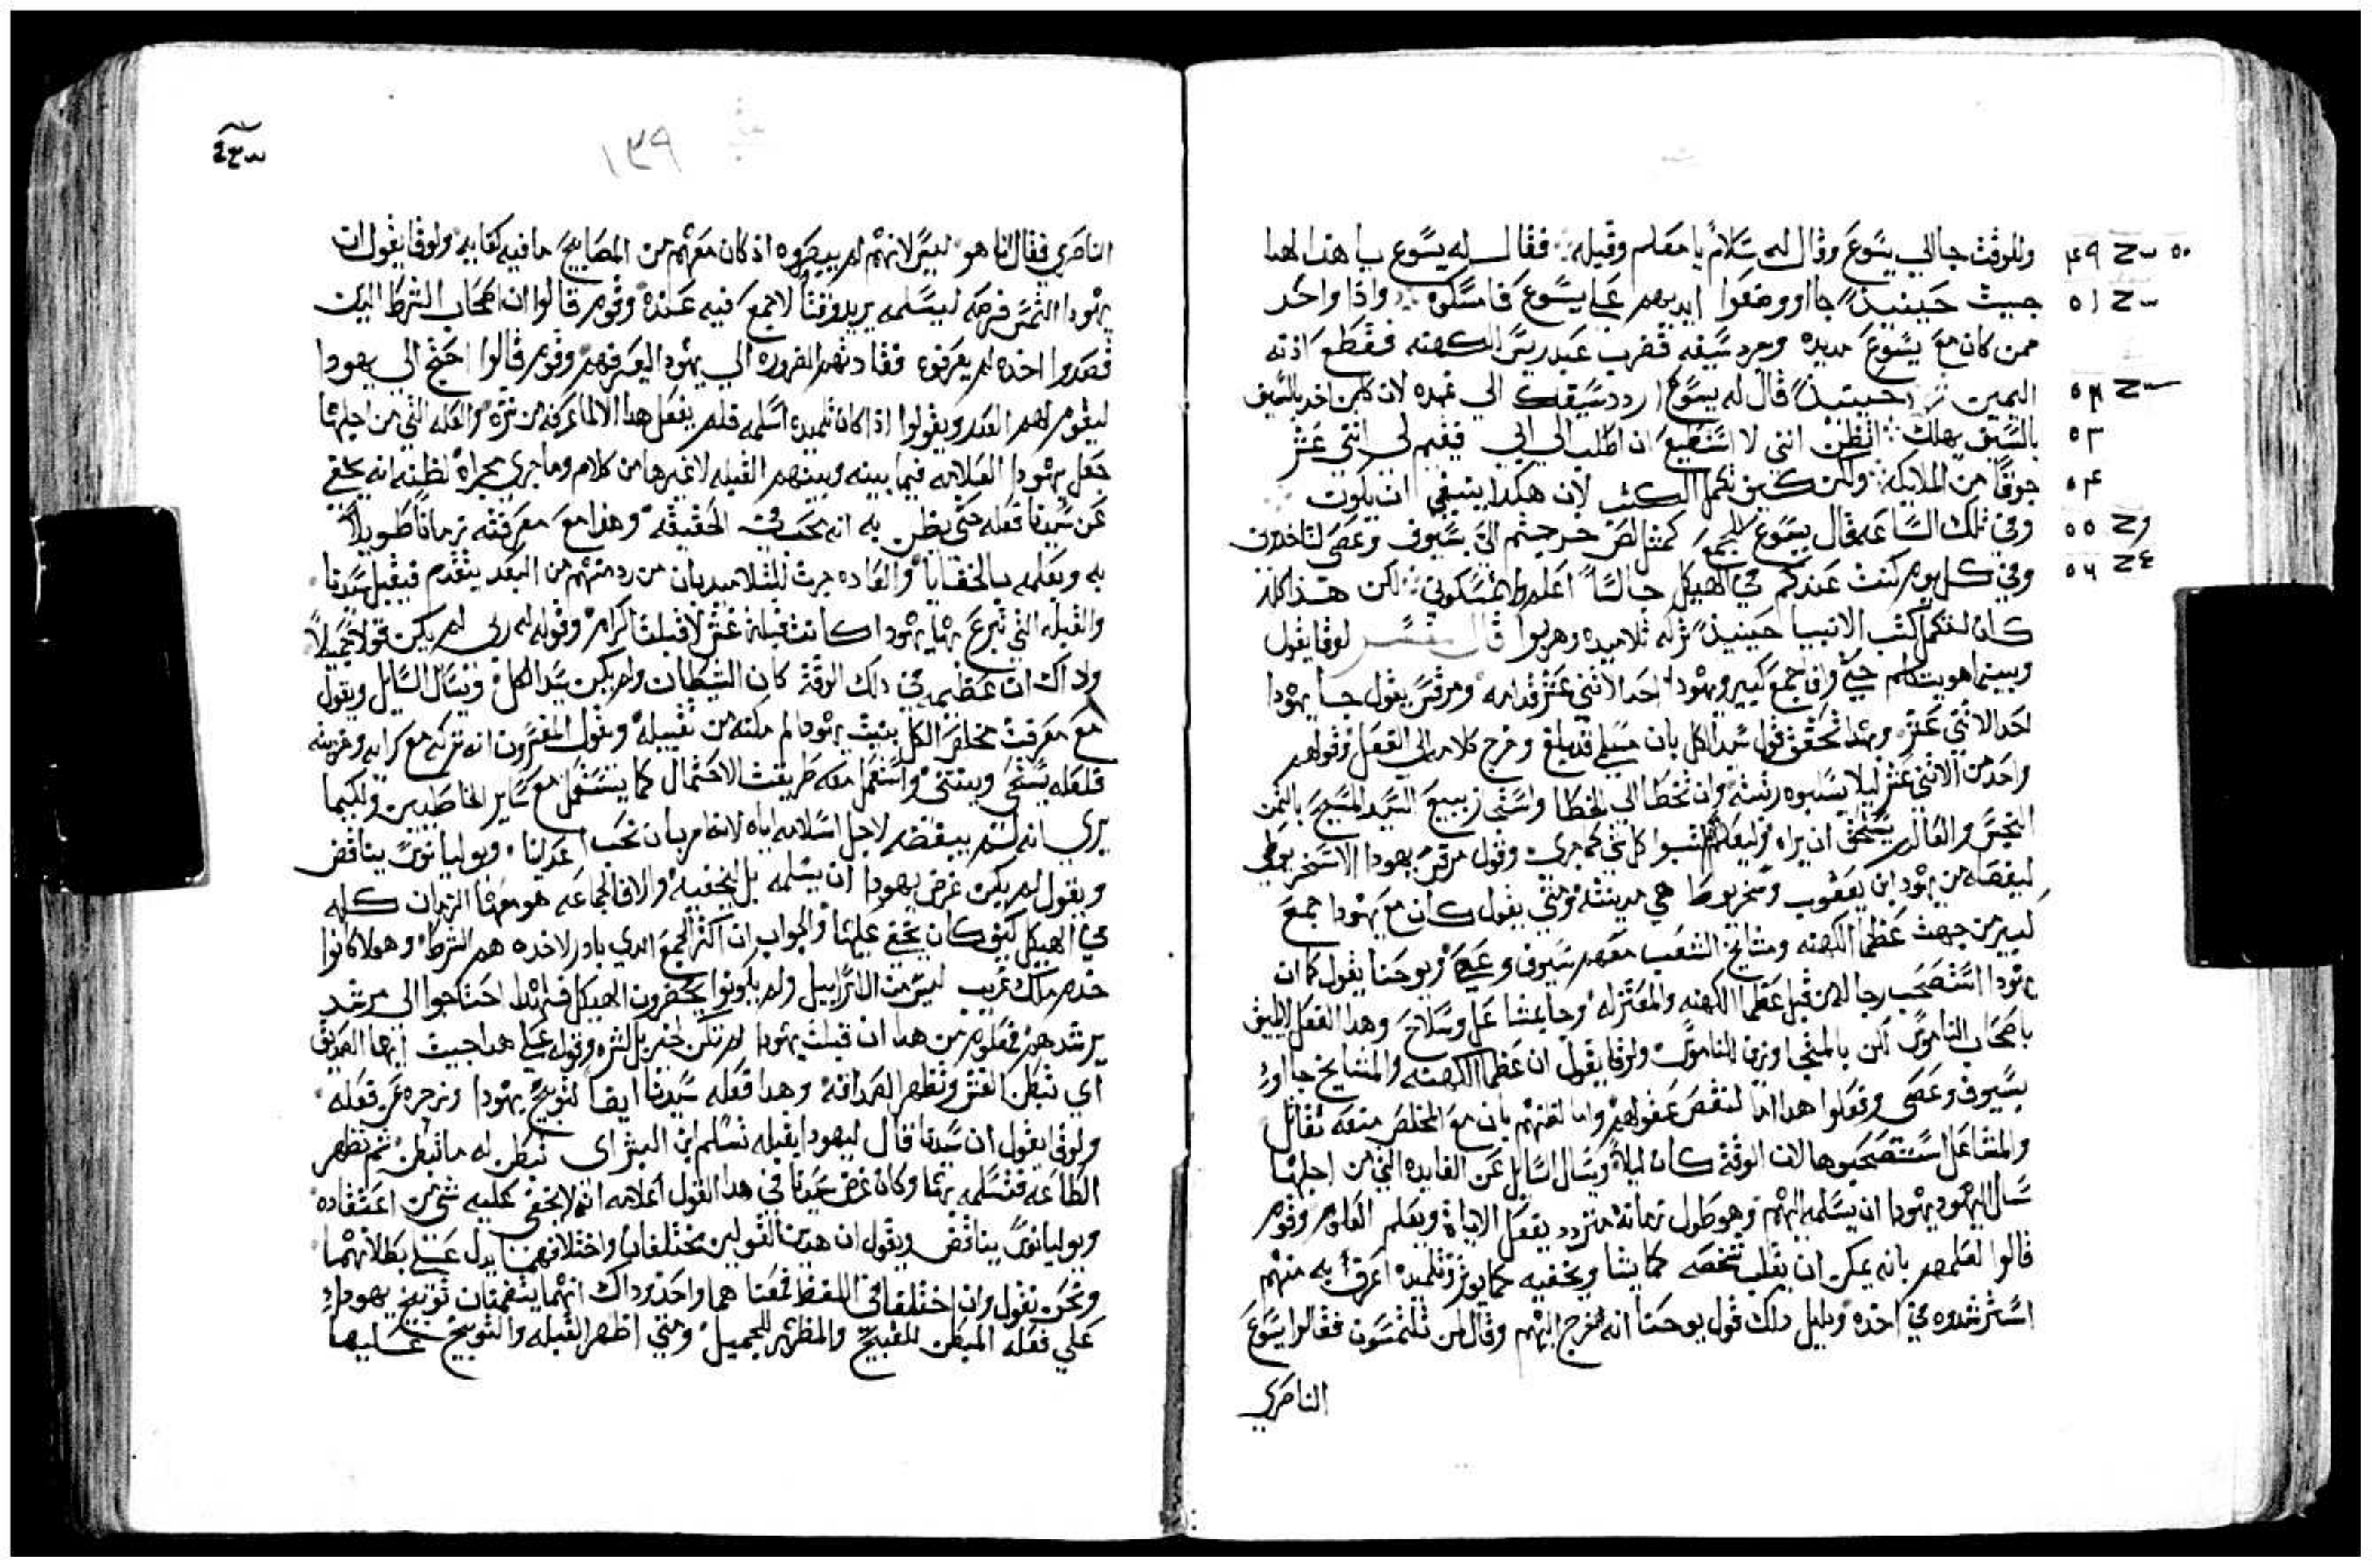 وللوقت جا الي يسوع وقال له سلام يا معلم وقبله فقال له يسوع يا هذا لهذا
جيت حينيذ جاا ووضعوا ايديهم علي يسوع فامسكوه واذا واحد
ممن كان مع يسوع مد يده وجرد سيفه فضرب عبد ريس الكهنه فقطع اذنه
اليمين حينيذ قال له يسوع اردد سيفك الي غمده لان كلمن اخد بالسيف
بالسيف يهلك اتظن انني لا استطيع ان اطلب الي ابي فيقيم لي اثني عشر
جوقا من الملايكه ولكن كيف تكمل الكتب لان هكدا ينبغي ان يكون
وفي تلك الساعه قال يسوع للجمع كمثل لص خرجتم الي بسيوف وعصي لتاخدوني
وفي كل يوم كنت عندكم في الهيكل جالسا اعلم ولم تمسكوني لكن هذا كله
كان لتكمل كتب الانبيا حينيذ تركه تلاميده وهربوا قال المفسر لوقا يقول
وبينما هو يتكلم جي وافا جمع كبير ويهودا احد الاثني عشر قدامه ومرقس يقول جا يهودا
احد الاثني عشر وبهدا تحقق قول سيد الكل بان مسلمي قد بلغ وخرج كلامه الي الفعل وقولهم
واحد من الاثني عشر ليلا يسلبوه رتبته وان تخطا الي الخطا واستجاز بيع السيد المسيح بالثمن
البخس والعالم يستحق ان يراه وليعلم كتبوا كل شي كما جري وقول مرقس يهودا الاسخريوطي
ليفصله من يهودا ابن يعقوب وسخريوط هي مدينته ومتي يقول كان مع يهودا جمع
كبير من جهت عظما الكهنه ومشايخ الشعب معهم سيوف وعصي ويوحنا يقول كما ان
يهودا استصحب رجاله من قبل عظما الكهنه والمعتزله وجا بمشاعل وسلاح وهدا الفعل لا يليق
باصحاب الناموس لكن بالمتجاوزين للناموس ولوقا يقول ان عظما الكهنه والمشايخ جااو
بسيوف وعصي وفعلوا هدا اما لنقص عقولهم واما لظنهم بان مع المخلص من معه تقاتل
والمشاعل استصحبوها لان الوقت كان ليلا ويسال السايل عن الفايده التي من اجلها
سال اليهود يهودا ان يسلمه اليهم وهو طول زمانه متردد يفعل الايات ويعلم العلوم وقوم
قالوا لعلمهم بانه يمكن ان يقلب شخصه كما يشا ويخفيه كما يوثر وتلميده اعرف به منهم
استرشدوه في اخده ودليل دلك قول يوحنا انه خرج اليهم وقال لمن تلتمسون فقالوا يسوع
الناصري
١٣٩
الناصري فقال انا هو ليس لانهم لم يبصروه اذ كان معهم من المصابيح ما فيه كفايه ولوقا يقول ان
يهودا التمس فرصه ليسلمه يريد وقتا لا جمع فيه عنده وقوم قالوا ان اصحاب الشرط الدين
قصدوا اخده لم يعرفوه فقادتهم الضروره الي يهودا ليعرفهم وقوم قالوا احتج الي يهودا
ليقوم لهم العدر ويقولوا اذا كان تلميده اسلمه فلم يفعل هدا الا لما عرفه من شره والعله التي من اجلها
جعل يهودا العلامه فيما بينه وبينهم القبله لا غيرها من كلام وما جري مجراه لظنه انه يخفي
عن سيدنا فعله حتي يظن به انه محب في الحقيقه وهدا مع معرفته زمانا طويلا
به وبعلمه بالخفايا والعاده جرت للتلاميد بان من رد منهم من البعد يتقدم فيقبل سيدنا
والقبله التي تبرع بها يهودا كانت قبلة غش لا قبلت اكرام وقوله له ربي لم يكن قولا جميلا
وداك ان عظيمه في دلك الوقت كان الشيطان ولم يكن سيد الكل ويسال السايل ويقول
مع معرفت مخلص الكل بنيت يهودا لم مكنه من تقبيله ويقول المفسرون انه تركه مع كرامه وخزينه
فلعله يستحي وينثني واستعمل معه طريقت الاحتمال كما يستعمل مع ساير الخاطيين ولكيما
يري انه ليس يبغضه لاجل اسلامه اياه لانه امر بان نحب اعدانا ويوليانوس يناقض
ويقول لم يكن غرض يهودا ان يسلمه بل ليخفيه والا فالجماعه هو معها الزمان كله
في الهيكل كيف كان يخفي عليها والجواب ان اكثر الجمع الدي بادر لاخده هم الشرط وهولا كانوا
خدم ملك غريب ليس من ال اسراييل ولم يكونوا يحضرون الهيكل فلهدا احتاجوا الي مرشد
يرشدهم فمعلوم من هدا ان قبلت يهودا لم تكن لخير بل لشره وقوله علي هدا جيت ايها الصديق
اي تبطن الغش وتظهر الصداقه وهدا فعله سيدنا ايضا لتوبيخ يهودا وزجره عن فعله
ولوقا يقول ان سيدنا قال ليهودا بقبله تسلم ابن البشر اي تبطن له ما تبطن ثم تظهر
الطاعه فتسلمه بها وكان غرض سيدنا في هدا القول اعلامه انه لا يخفي عليه شي من اعتقاده
ويوليانوس يناقض ويقول ان هدين القولين مختلفان واختلافهما يدل علي بطلانهما
ونحن نقول وان اختلفا في اللفظ فمعناهما واحد وداك انهما يتضمنان توبيخ يهودا
علي فعله المبطن للقبيح والمظهر للجميل ومتي اظهر القبله والتوبيخ عليها